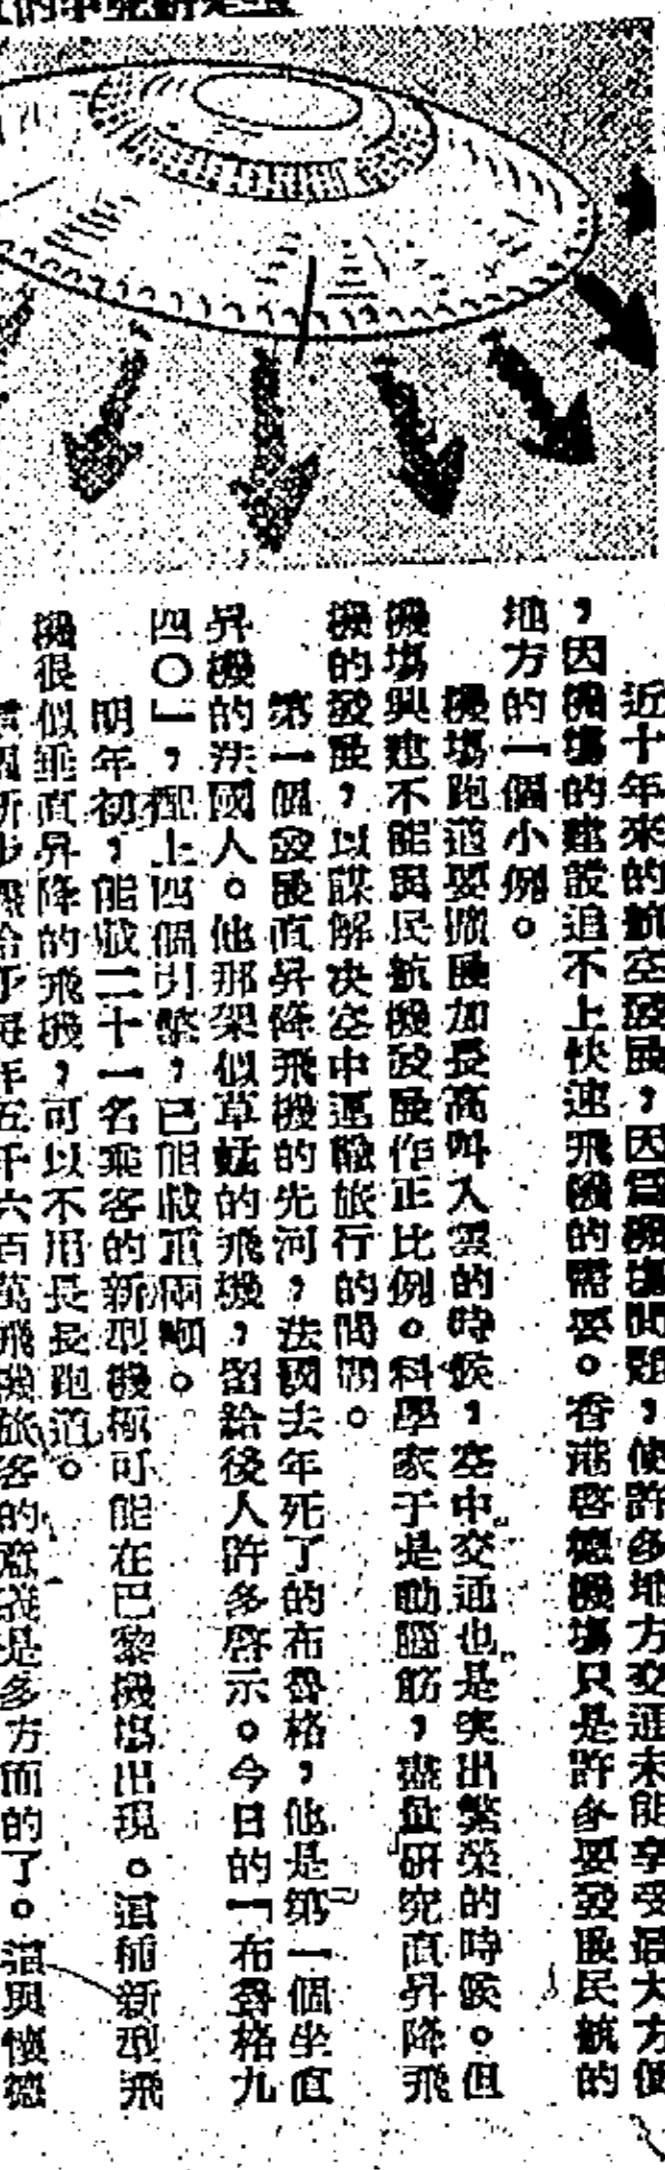 近十年來的航空發展，因爲機場問題，使許多地方交通未能享受最大方便
，因機場的建設追不上快速飛機的需要。香港啓德機場只是許多要發展民航的
地方的一個小例。
機場跑道要擴展加長高呌入雲的時候，空中交通也是突出繁榮的時候。但
機塲興建不能與民航機發展作正比例。科學家于是動腦筋，盡量研究直昇降飛
機的發展，以謀解決空中運輸旅行的問題。
第一個發展直昇降飛機的先河，法國去年死了的布魯格，他是第一個坐直
昇機的法國人。他那架似草蜢的飛機，留給後人許多啓示。今日的「布魯格九
四〇」，配上四個引擎，已能載重兩噸。
明年初，能載二十一名乘客的新型機極可能在巴黎機塲出現。這種新型飛
機很似垂直昇降的飛機，可以不用長長跑道。
年五千六百萬飛機旅客的意義是多方面的了。這與懷德